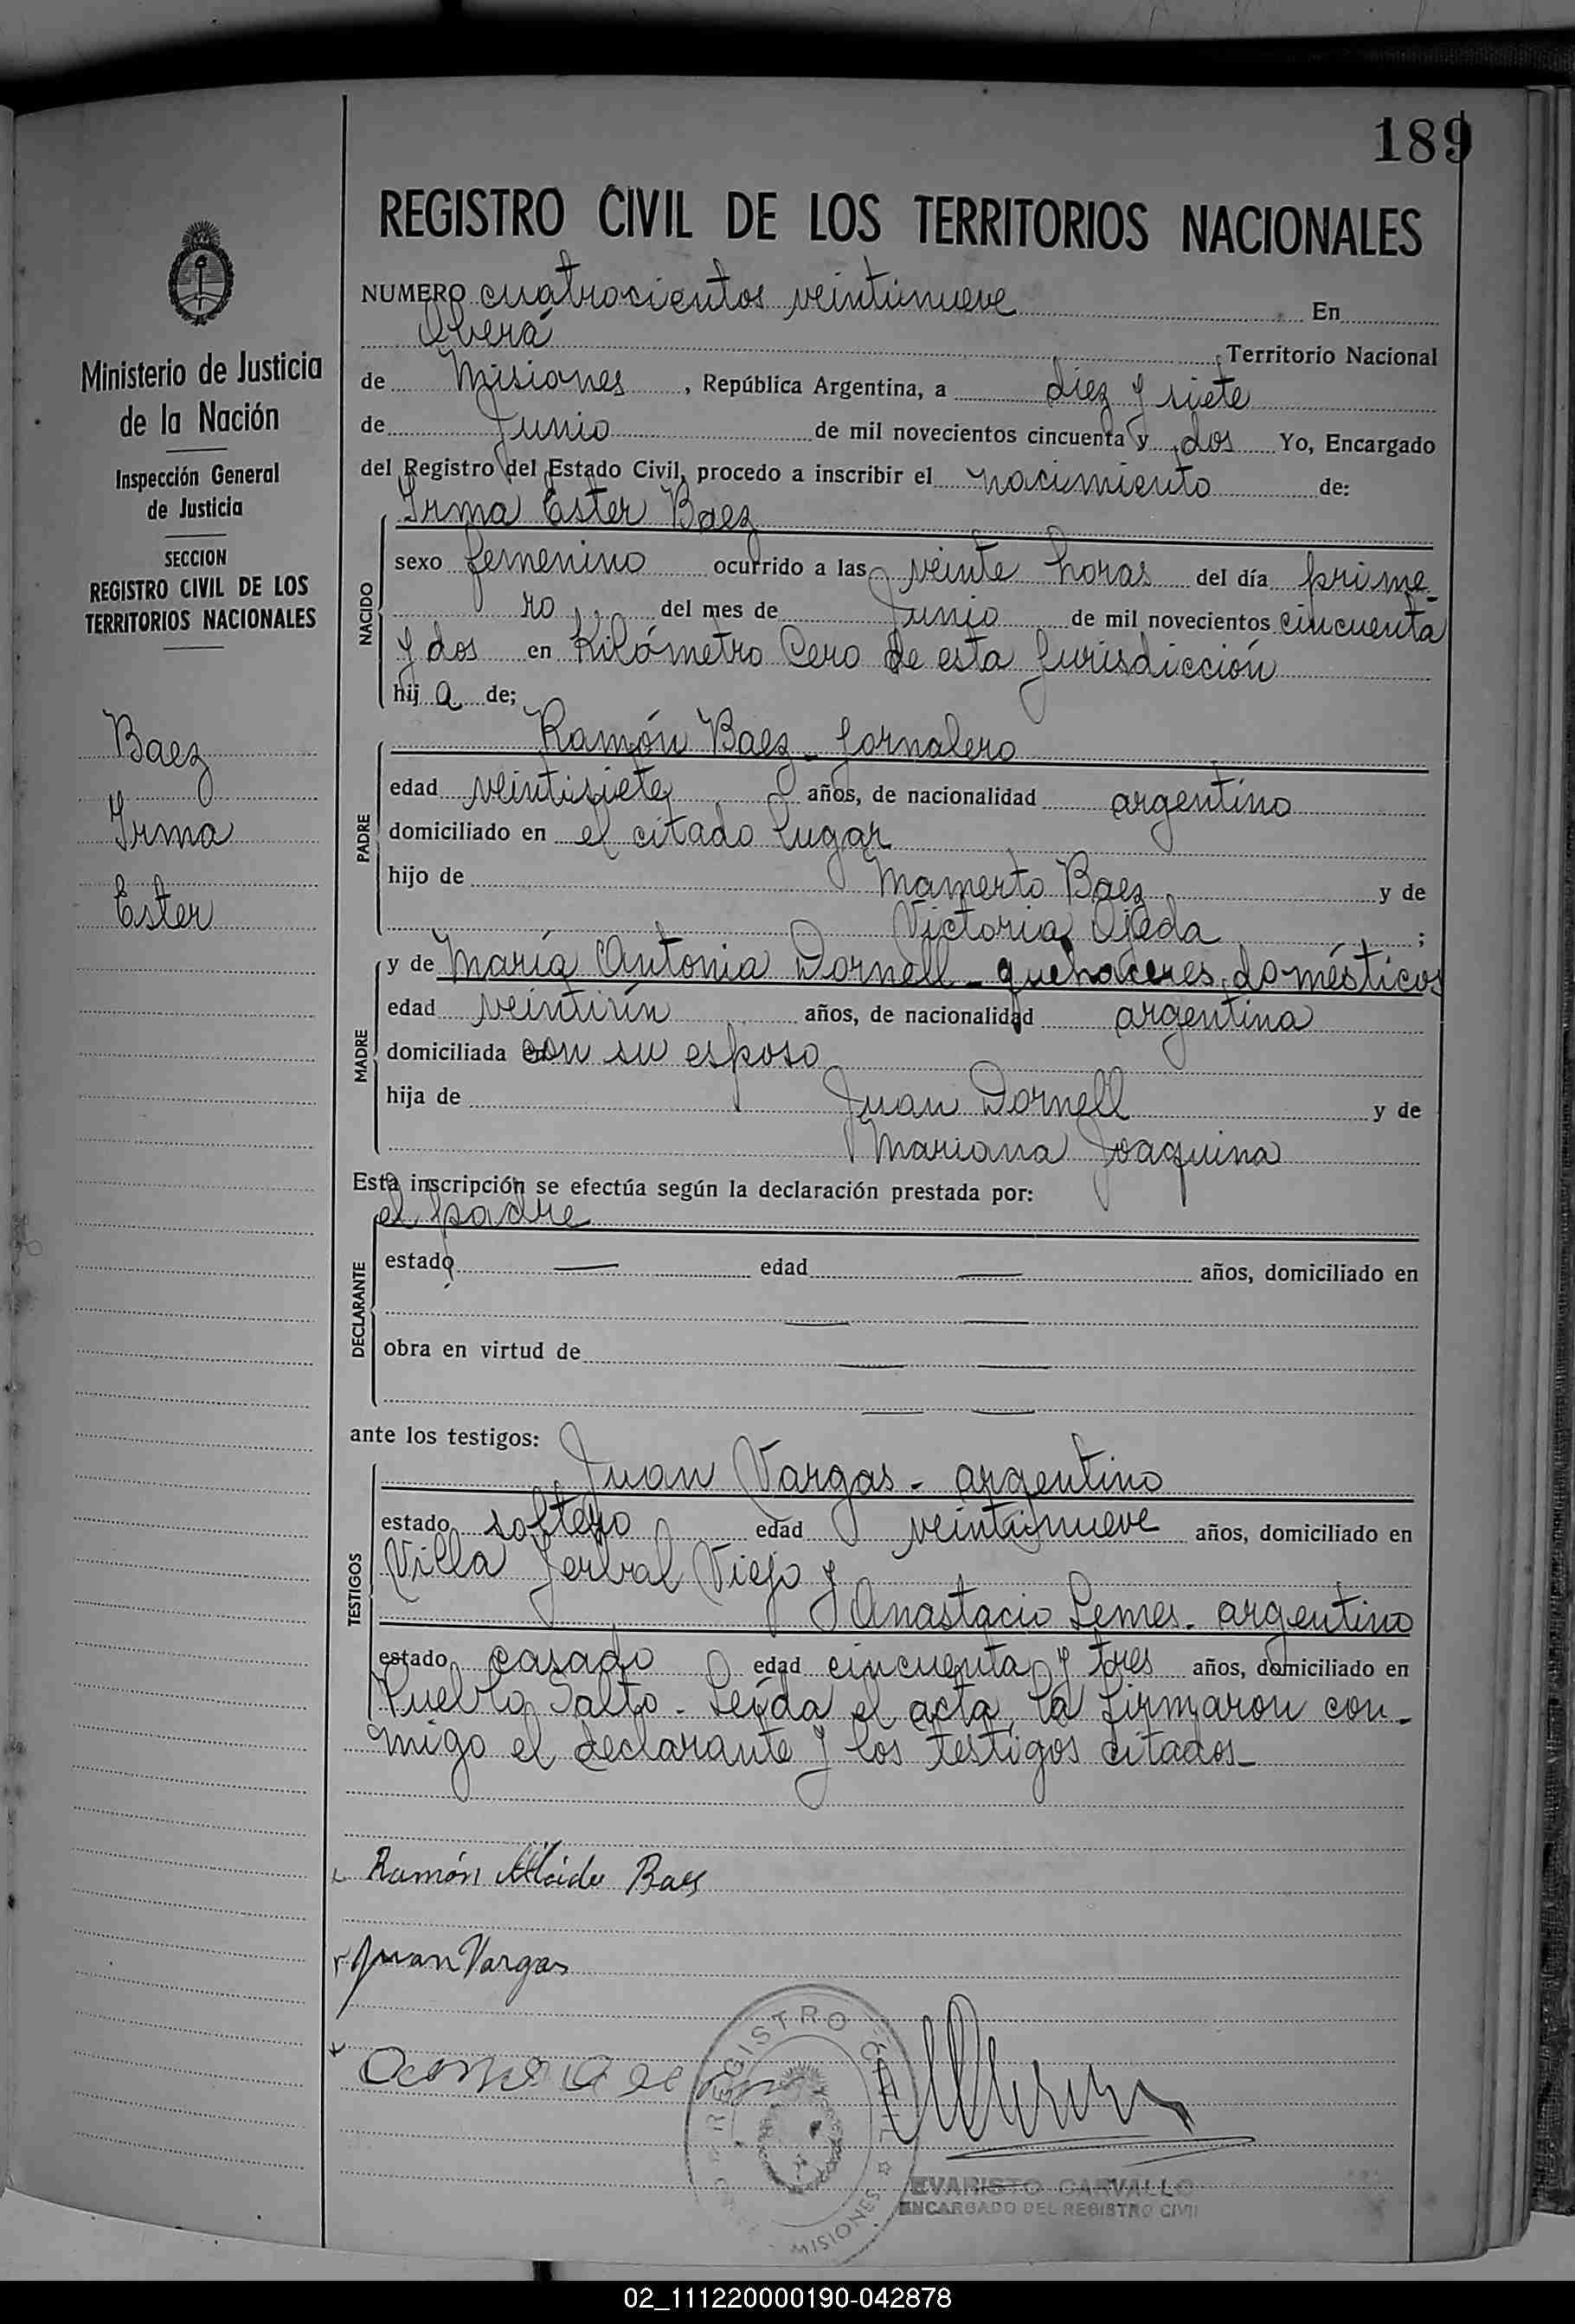 189
REGISTRO CIVIL DE LOS TERRITORIOS NACIONALES
Ministerio de Justicia
de la Nación
Inspección General
de Justicia
SECCION
REGISTRO CIVIL DE LOS
TERRITORIOS NACIONALES
Baez
Irma
Ester
NUMERO cuatrocientos veintinueve En
Oberá Territorio Nacional
de Misiones, República Argentina, a diez y siete
de Junio de mil novecientos cincuenta y dos Yo, Encargado
del Registro del Estado Civil, procedo a inscribir el nacimiento de:
Irma Ester Baez
NACIDO
sexo femenino ocurrido a las veinte horas del día prime-
ro del mes de Junio de mil novecientos cincuenta
y dos en Kilómetro Cero de esta Jurisdicción
hij a de;
PADRE
Ramón Baez - Jornalero
edad veintisiete años, de nacionalidad argentino
domiciliado en el citado lugar
hijo de Mamerto Baez y de
Victoria Ojeda ;
MADRE
y de María Antonia Dornell - quehaceres domésticos
edad veintiún años, de nacionalidad argentina
domiciliada con su esposo
hija de Juan Dornell y de
Mariana Joaquina
Esta inscripción se efectúa según la declaración prestada por:
el padre
DECLARANTE
estado — edad — años, domiciliado en
— —
obra en virtud de — —
— —
ante los testigos:
Juan Vargas - argentino
TESTIGOS
estado soltero edad veintinueve años, domiciliado en
Villa Yerbal Viejo y
Anastacio Lemes - argentino
estado casado edad cincuenta y tres años, domiciliado en
Pueblo Salto - Leída el acta, la firmaron con-
migo el declarante y los testigos citados -
Ramón Baez
Juan Vargas
REGISTRO CIVIL
MISIONES
EVARISTO CARVALLO
ENCARGADO DEL REGISTRO CIVIL
02_111220000190-042878